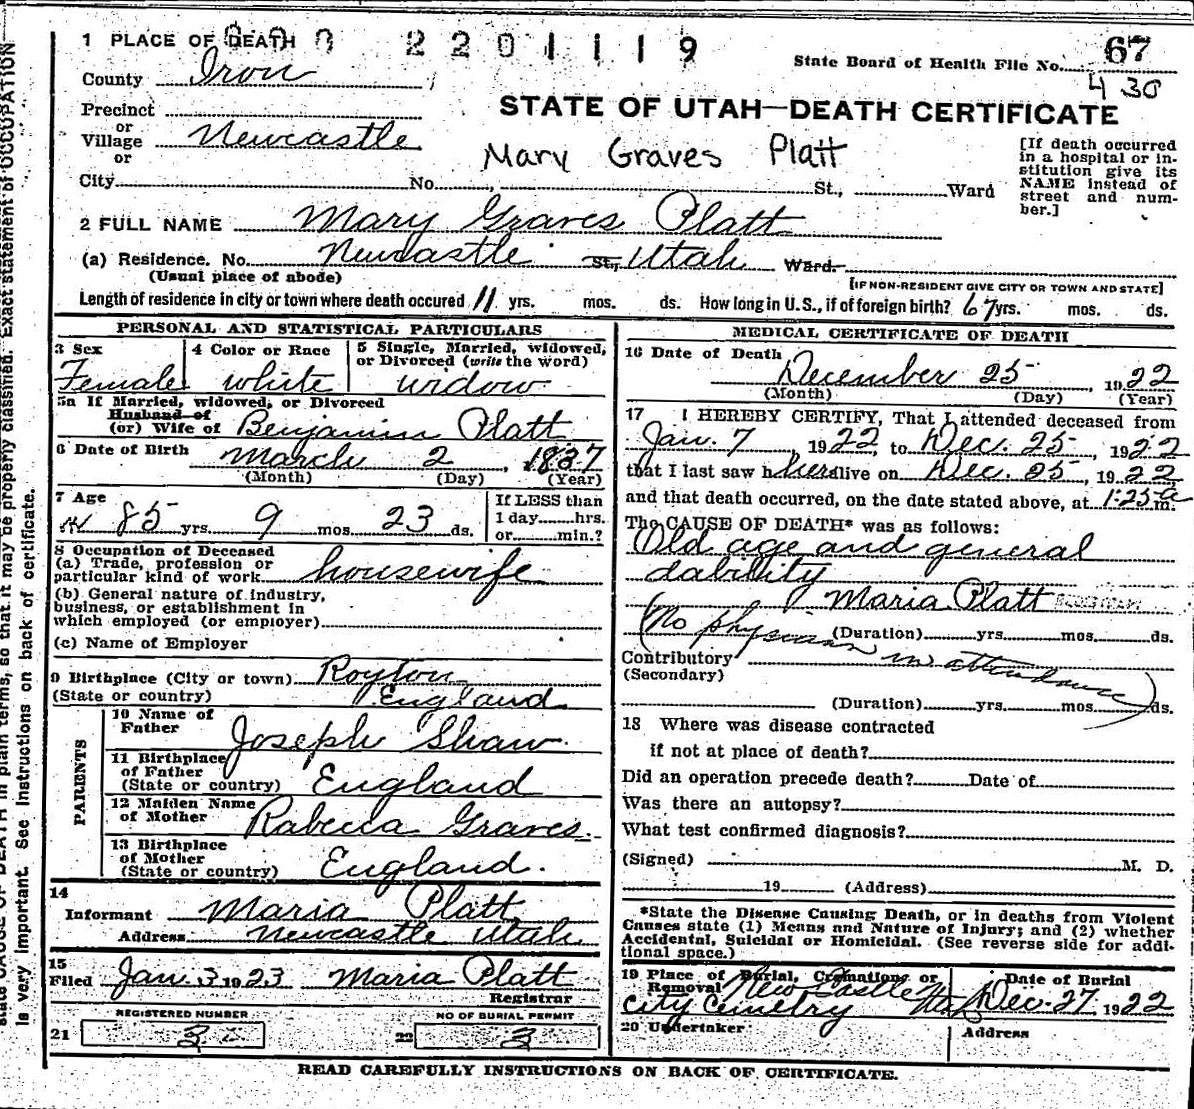 1 PLACE OF DEATH 2201119
State Board of Health File No. 67
County Iron
430
STATE OF UTAH—DEATH CERTIFICATE
Precinct
or
Village Newcastle
or
Mary Graves Platt
[If death occurred in a hospital or institution give its NAME instead of street and number.]
City No. St., Ward
2 FULL NAME Mary Graves Platt
(a) Residence. No. Newcastle St., Utah Ward.
(Usual place of abode)
[IF NON-RESIDENT GIVE CITY OR TOWN AND STATE]
Length of residence in city or town where death occured 11 yrs. mos. ds. How long in U.S., if of foreign birth? 67 yrs. mos. ds.
PERSONAL AND STATISTICAL PARTICULARS
3 Sex
Female
4 Color or Race
white
5 Single, Married, widowed, or Divorced (write the word)
widow
5a If Married, widowed, or Divorced
Husband of
(or) Wife of Benjamin Platt
6 Date of Birth March 2, 1837
(Month) (Day) (Year)
7 Age
85 yrs. 9 mos. 23 ds.
If LESS than
1 day hrs.
or min.?
8 Occupation of Deceased
(a) Trade, profession or
particular kind of work housewife
(b) General nature of industry,
business, or establishment in
which employed (or employer)
(c) Name of Employer
9 Birthplace (City or town) Royton
(State or country) England
PARENTS
10 Name of
Father Joseph Shaw
11 Birthplace
of Father
(State or country) England
12 Maiden Name
of Mother Rabecca Graves.
13 Birthplace
of Mother
(State or country) England.
14
Informant Maria Platt
Address Newcastle Utah
15
Filed Jan. 3 1923 Maria Platt
Registrar
REGISTERED NUMBER
21 3
NO OF BURIAL PERMIT
22 3
MEDICAL CERTIFICATE OF DEATH
16 Date of Death December 25, 1922
(Month) (Day) (Year)
17 I HEREBY CERTIFY, That I attended deceased from
Jan. 7, 1922, to Dec. 25, 1922
that I last saw her alive on Dec. 25, 1922
and that death occurred, on the date stated above, at 1:25 a m.
The CAUSE OF DEATH* was as follows:
Old age and general
dability
Maria Platt
(No physician in attendance)
(Duration) yrs. mos. ds.
Contributory
(Secondary)
(Duration) yrs. mos. ds.
18 Where was disease contracted
if not at place of death?
Did an operation precede death? Date of
Was there an autopsy?
What test confirmed diagnosis?
(Signed) M. D.
19 (Address)
*State the Disease Causing Death, or in deaths from Violent
Causes state (1) Means and Nature of Injury; and (2) whether
Accidental, Suicidal or Homicidal. (See reverse side for addi-
tional space.)
19 Place of Burial, Cremations or
Removal New Castle
City Cemetry Utah
Date of Burial
Dec. 27, 1922
20 Undertaker
Address
READ CAREFULLY INSTRUCTIONS ON BACK OF CERTIFICATE.
state CAUSE OF DEATH in plain terms, so that it may be properly classified. Exact statement of OCCUPATION
is very important. See Instructions on back of certificate.